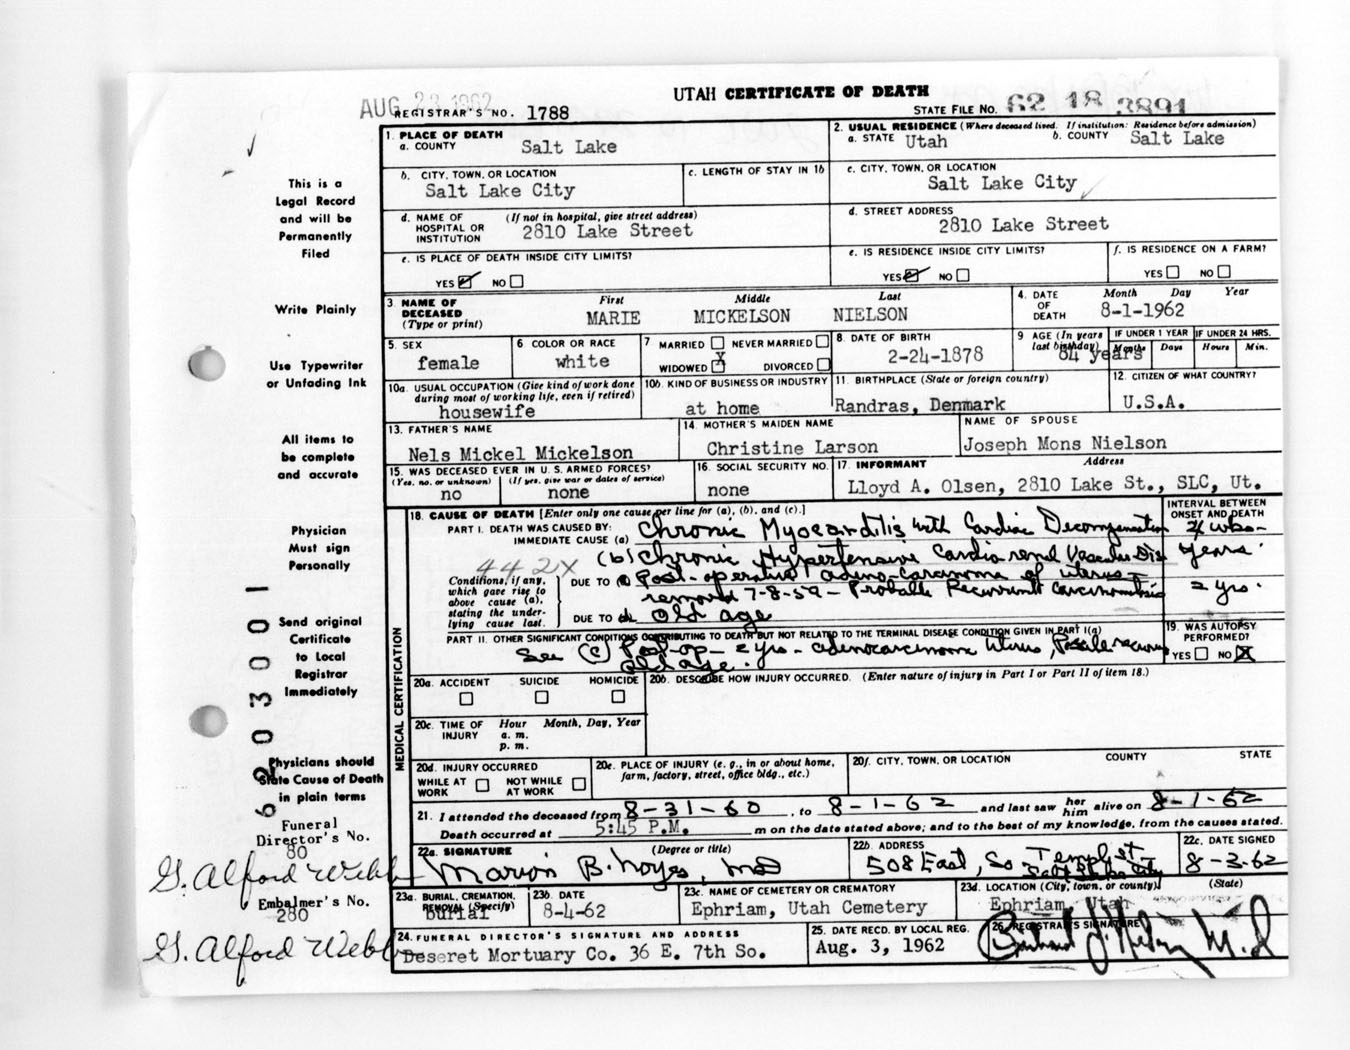 AUG 23 1962
UTAH CERTIFICATE OF DEATH
REGISTRAR'S NO. 1788
STATE FILE NO. 62 18 3891
This is a
Legal Record
and will be
Permanently
Filed
Write Plainly
Use Typewriter
or Unfading Ink
All items to
be complete
and accurate
Physician
Must sign
Personally
Send original
Certificate
to Local
Registrar
Immediately
Physicians should
State Cause of Death
in plain terms
Funeral
Director's No.
80
G. Alford Webb
Embalmer's No.
280
G. Alford Webb
1. PLACE OF DEATH
a. COUNTY Salt Lake
2. USUAL RESIDENCE (Where deceased lived. If institution: Residence before admission)
a. STATE Utah b. COUNTY Salt Lake
b. CITY, TOWN, OR LOCATION
Salt Lake City
c. LENGTH OF STAY IN 1b
c. CITY, TOWN, OR LOCATION
Salt Lake City
d. NAME OF HOSPITAL OR INSTITUTION (If not in hospital, give street address)
2810 Lake Street
d. STREET ADDRESS
2810 Lake Street
e. IS PLACE OF DEATH INSIDE CITY LIMITS?
YES NO
e. IS RESIDENCE INSIDE CITY LIMITS?
YES NO
f. IS RESIDENCE ON A FARM?
YES NO
3. NAME OF DECEASED (Type or print)
First Middle Last
MARIE MICKELSON NIELSON
4. DATE OF DEATH Month Day Year
8-1-1962
5. SEX
female
6 COLOR OR RACE
white
7 MARRIED NEVER MARRIED
WIDOWED X DIVORCED
8. DATE OF BIRTH
2-24-1878
9 AGE (In years last birthday)
84 years
IF UNDER 1 YEAR
Months Days
IF UNDER 24 HRS.
Hours Min.
10a. USUAL OCCUPATION (Give kind of work done during most of working life, even if retired)
housewife
10b. KIND OF BUSINESS OR INDUSTRY
at home
11. BIRTHPLACE (State or foreign country)
Randras, Denmark
12. CITIZEN OF WHAT COUNTRY?
U.S.A.
13. FATHER'S NAME
Nels Mickel Mickelson
14. MOTHER'S MAIDEN NAME
Christine Larson
NAME OF SPOUSE
Joseph Mons Nielson
15. WAS DECEASED EVER IN U. S. ARMED FORCES?
(Yes, no, or unknown) (If yes, give war or dates of service)
no none
16. SOCIAL SECURITY NO.
none
17. INFORMANT Address
Lloyd A. Olsen, 2810 Lake St., SLC, Ut.
MEDICAL CERTIFICATION
18. CAUSE OF DEATH [Enter only one cause per line for (a), (b), and (c).]
INTERVAL BETWEEN ONSET AND DEATH
PART I. DEATH WAS CAUSED BY:
IMMEDIATE CAUSE (a) Chronic Myocarditis with Cardiac Decompensation wks-
(b) Chronic Hypertensive Cardio renal Vascular Dis years
442X
Conditions, if any, which gave rise to above cause (a), stating the underlying cause last.
DUE TO Post-operative adeno-carcinoma of uterus-
removed 7-8-59 - Probable Recurrent carcinomatosis 2 yrs.
DUE TO old age
PART II. OTHER SIGNIFICANT CONDITIONS CONTRIBUTING TO DEATH BUT NOT RELATED TO THE TERMINAL DISEASE CONDITION GIVEN IN PART I(a)
See (c) Post-op - 2 yrs. - adenocarcinoma Uterus,
old age.
19. WAS AUTOPSY PERFORMED?
YES NO X
20a. ACCIDENT SUICIDE HOMICIDE
20b. DESCRIBE HOW INJURY OCCURRED. (Enter nature of injury in Part I or Part II of item 18.)
20c. TIME OF INJURY Hour Month, Day, Year
a. m.
p. m.
20d. INJURY OCCURRED
WHILE AT WORK NOT WHILE AT WORK
20e. PLACE OF INJURY (e. g., in or about home, farm, factory, street, office bldg., etc.)
20f. CITY, TOWN, OR LOCATION COUNTY STATE
21. I attended the deceased from 8-31-60, to 8-1-62 and last saw her him alive on 8-1-62
Death occurred at 5:45 P.M. m on the date stated above; and to the best of my knowledge, from the causes stated.
22a. SIGNATURE (Degree or title)
Marion B. Noyes, MD
22b. ADDRESS
508 East, So Temple St
Salt Lake City
22c. DATE SIGNED
8-3-62
23a. BURIAL, CREMATION, REMOVAL (Specify)
burial
23b. DATE
8-4-62
23c. NAME OF CEMETERY OR CREMATORY
Ephriam, Utah Cemetery
23d. LOCATION (City, town, or county) (State)
Ephriam, Utah
24. FUNERAL DIRECTOR'S SIGNATURE AND ADDRESS
Deseret Mortuary Co. 36 E. 7th So.
25. DATE RECD. BY LOCAL REG.
Aug. 3, 1962
26. REGISTRAR'S SIGNATURE
M.D.
6203001